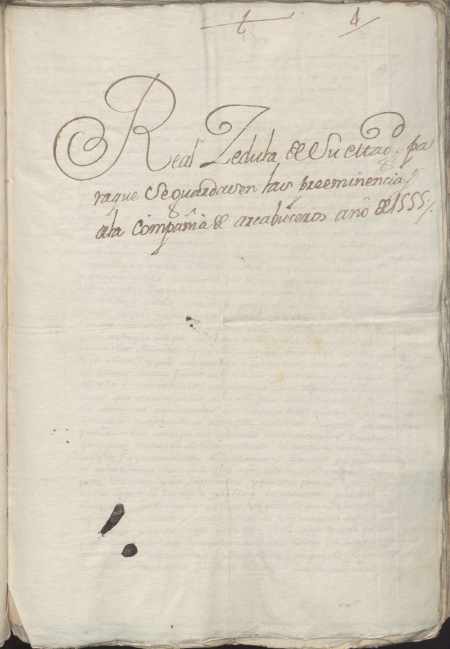 Real Zedula, de Su Magd. pa
raque Seguardasen las preeminencias
ala Compañia de arcabuceros año de 1555,